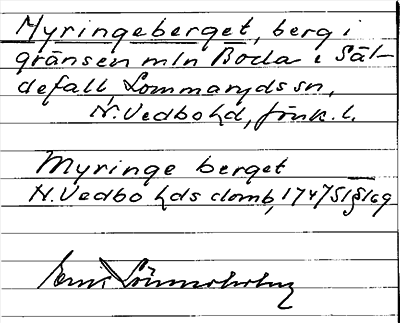 Myringeberget, berg i
gränsen mln Boda i Säl-
defall, Lommaryds sn,
N. Vedbo hd, Jönk. l.
Myringe berget
N. Vedbo hds domb, 1747 S1 §169